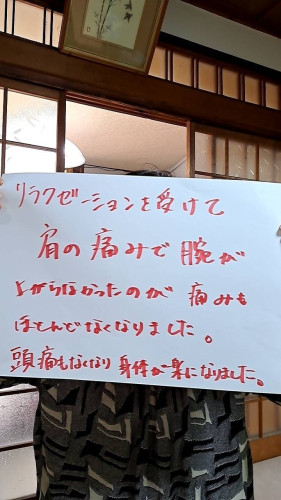 リラクゼーションを受けて
肩の痛みで腕が
上がらなかったのが 痛みも
ほとんどなくなりました。
頭痛もなくなり身体が楽になりました。